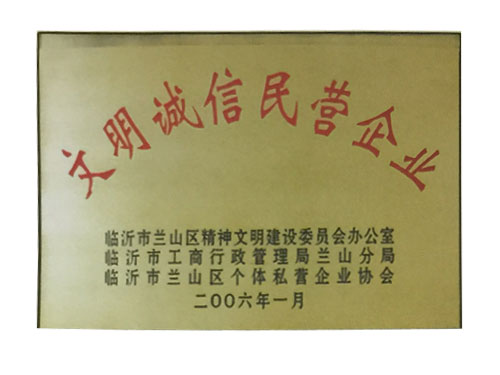 文明诚信民营企业
临沂市兰山区精神文明建设委员会办公室
临沂市工商行政管理局兰山分局
临沂市兰山区个体私营企业协会
二〇〇六年一月